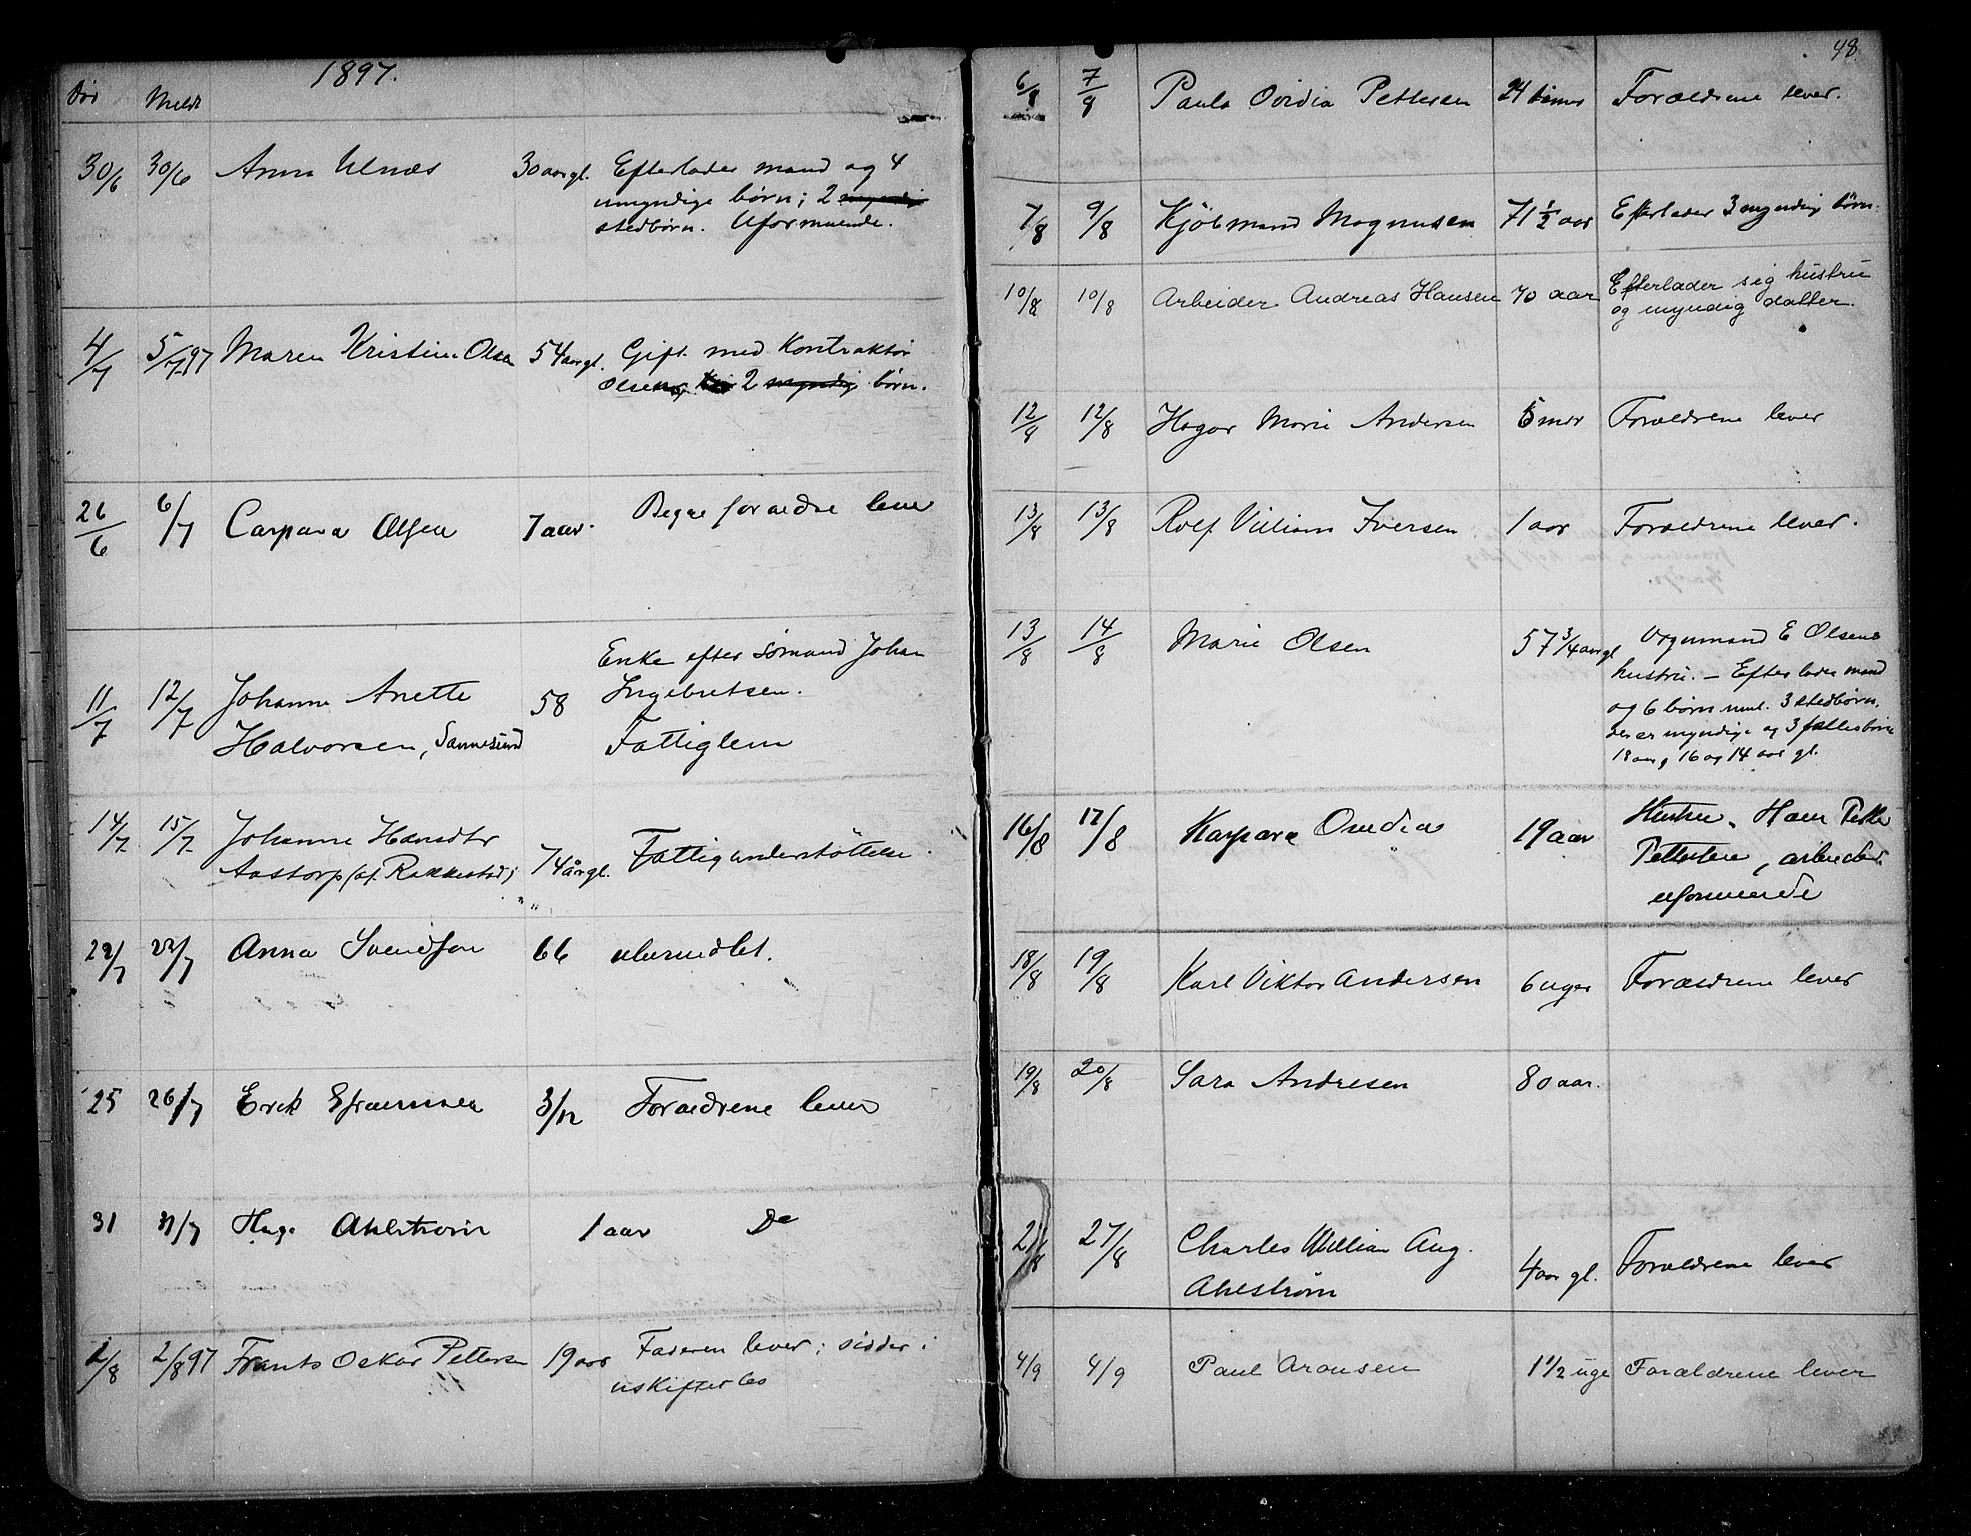 1897.
Død Meldt
30/6 30/6 Anna Ulnæs 30 aar gl. Efterlader mand og 4
umyndige børn; 2 myndig
stedbørn. Uformuende.
4/7 5/7 97 Maren Kristine Olsen 54 aar gl. Gift med Kontraktør
Olsen, 2 myndig børn.
26/6 6/7 Carpara Olsen 7 aar. Begge forældre lever
11/7 12/7 Johanne Anette 58 Enke efter sømand Johan
Ingebretsen.
Halvorsen, Sannesund Fattiglem
14/7 15/7 Johanne Hansdtr
Aastorp (af Rakkestad) 74 år gl. Fattigunderstøttelse.
22/7 22/7 Anna Svendsen 66 ubemidlet.
25 26/7 Erik Efraimsen 3/12 Forældrene lever
31 31/7 Hugo Ahlstrøm 1 aar Do
1/8 2/8 97 Frants Oskar Pettersen 19 aar Faderen lever; sidder i
uskiftet bo
48
6/8 7/8 Paula Ovidia Pettersen 24 timer Forældrene lever.
7/8 9/8 Kjøbmand Magnusen 71 1/2 aar Efterlader 3 myndig børn.
10/8 10/8 Arbeider Andreas Hansen 70 aar Efterlader sig hustru
og myndig datter.
12/8 12/8 Hagar Marie Andersen 5 mdr Forældrene lever
13/8 13/8 Rolf Villiam Iversen 1 aar Forældrene lever.
13/8 14/8 Marie Olsen 57 3/4 aar gl Vognmand E Olsens
hustru. – Efterlader mand
og 6 børn nml. 3 stedbørn,
der er myndige og 3 fællesbørn
18 aar, 16 og 14 aar gl.
16/8 17/8 Kaspara Ovedia 19 aar Hustru Hans Petter
Pettersen, arbeider
uformuende
18/8 19/8 Karl Viktor Andersen 6 uger Forældrene lever
19/8 20/8 Sara Andresen 80 aar.
27/8 27/8 Charles William Aug.
Ahlstrøm 4 aar gl. Forældrene lever
4/9 4/9 Paul Aronsen 1 1/2 uge Forældrene lever